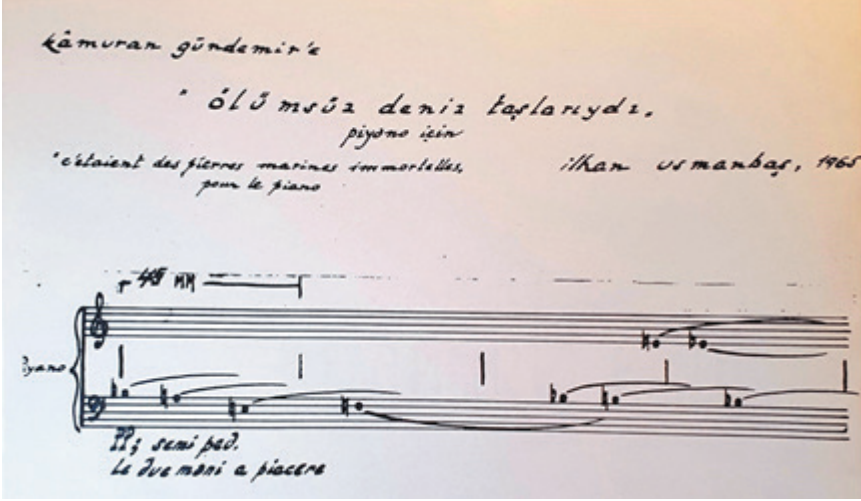 kâmuran gündemir'e
" ölümsüz deniz taşlarıydı.
piyano için
"c'étaient des pierres marines immortelles,
pour le piano
ilhan usmanbaş, 1965
MM
piyano
pp; semi ped.
Le due mani a piacere